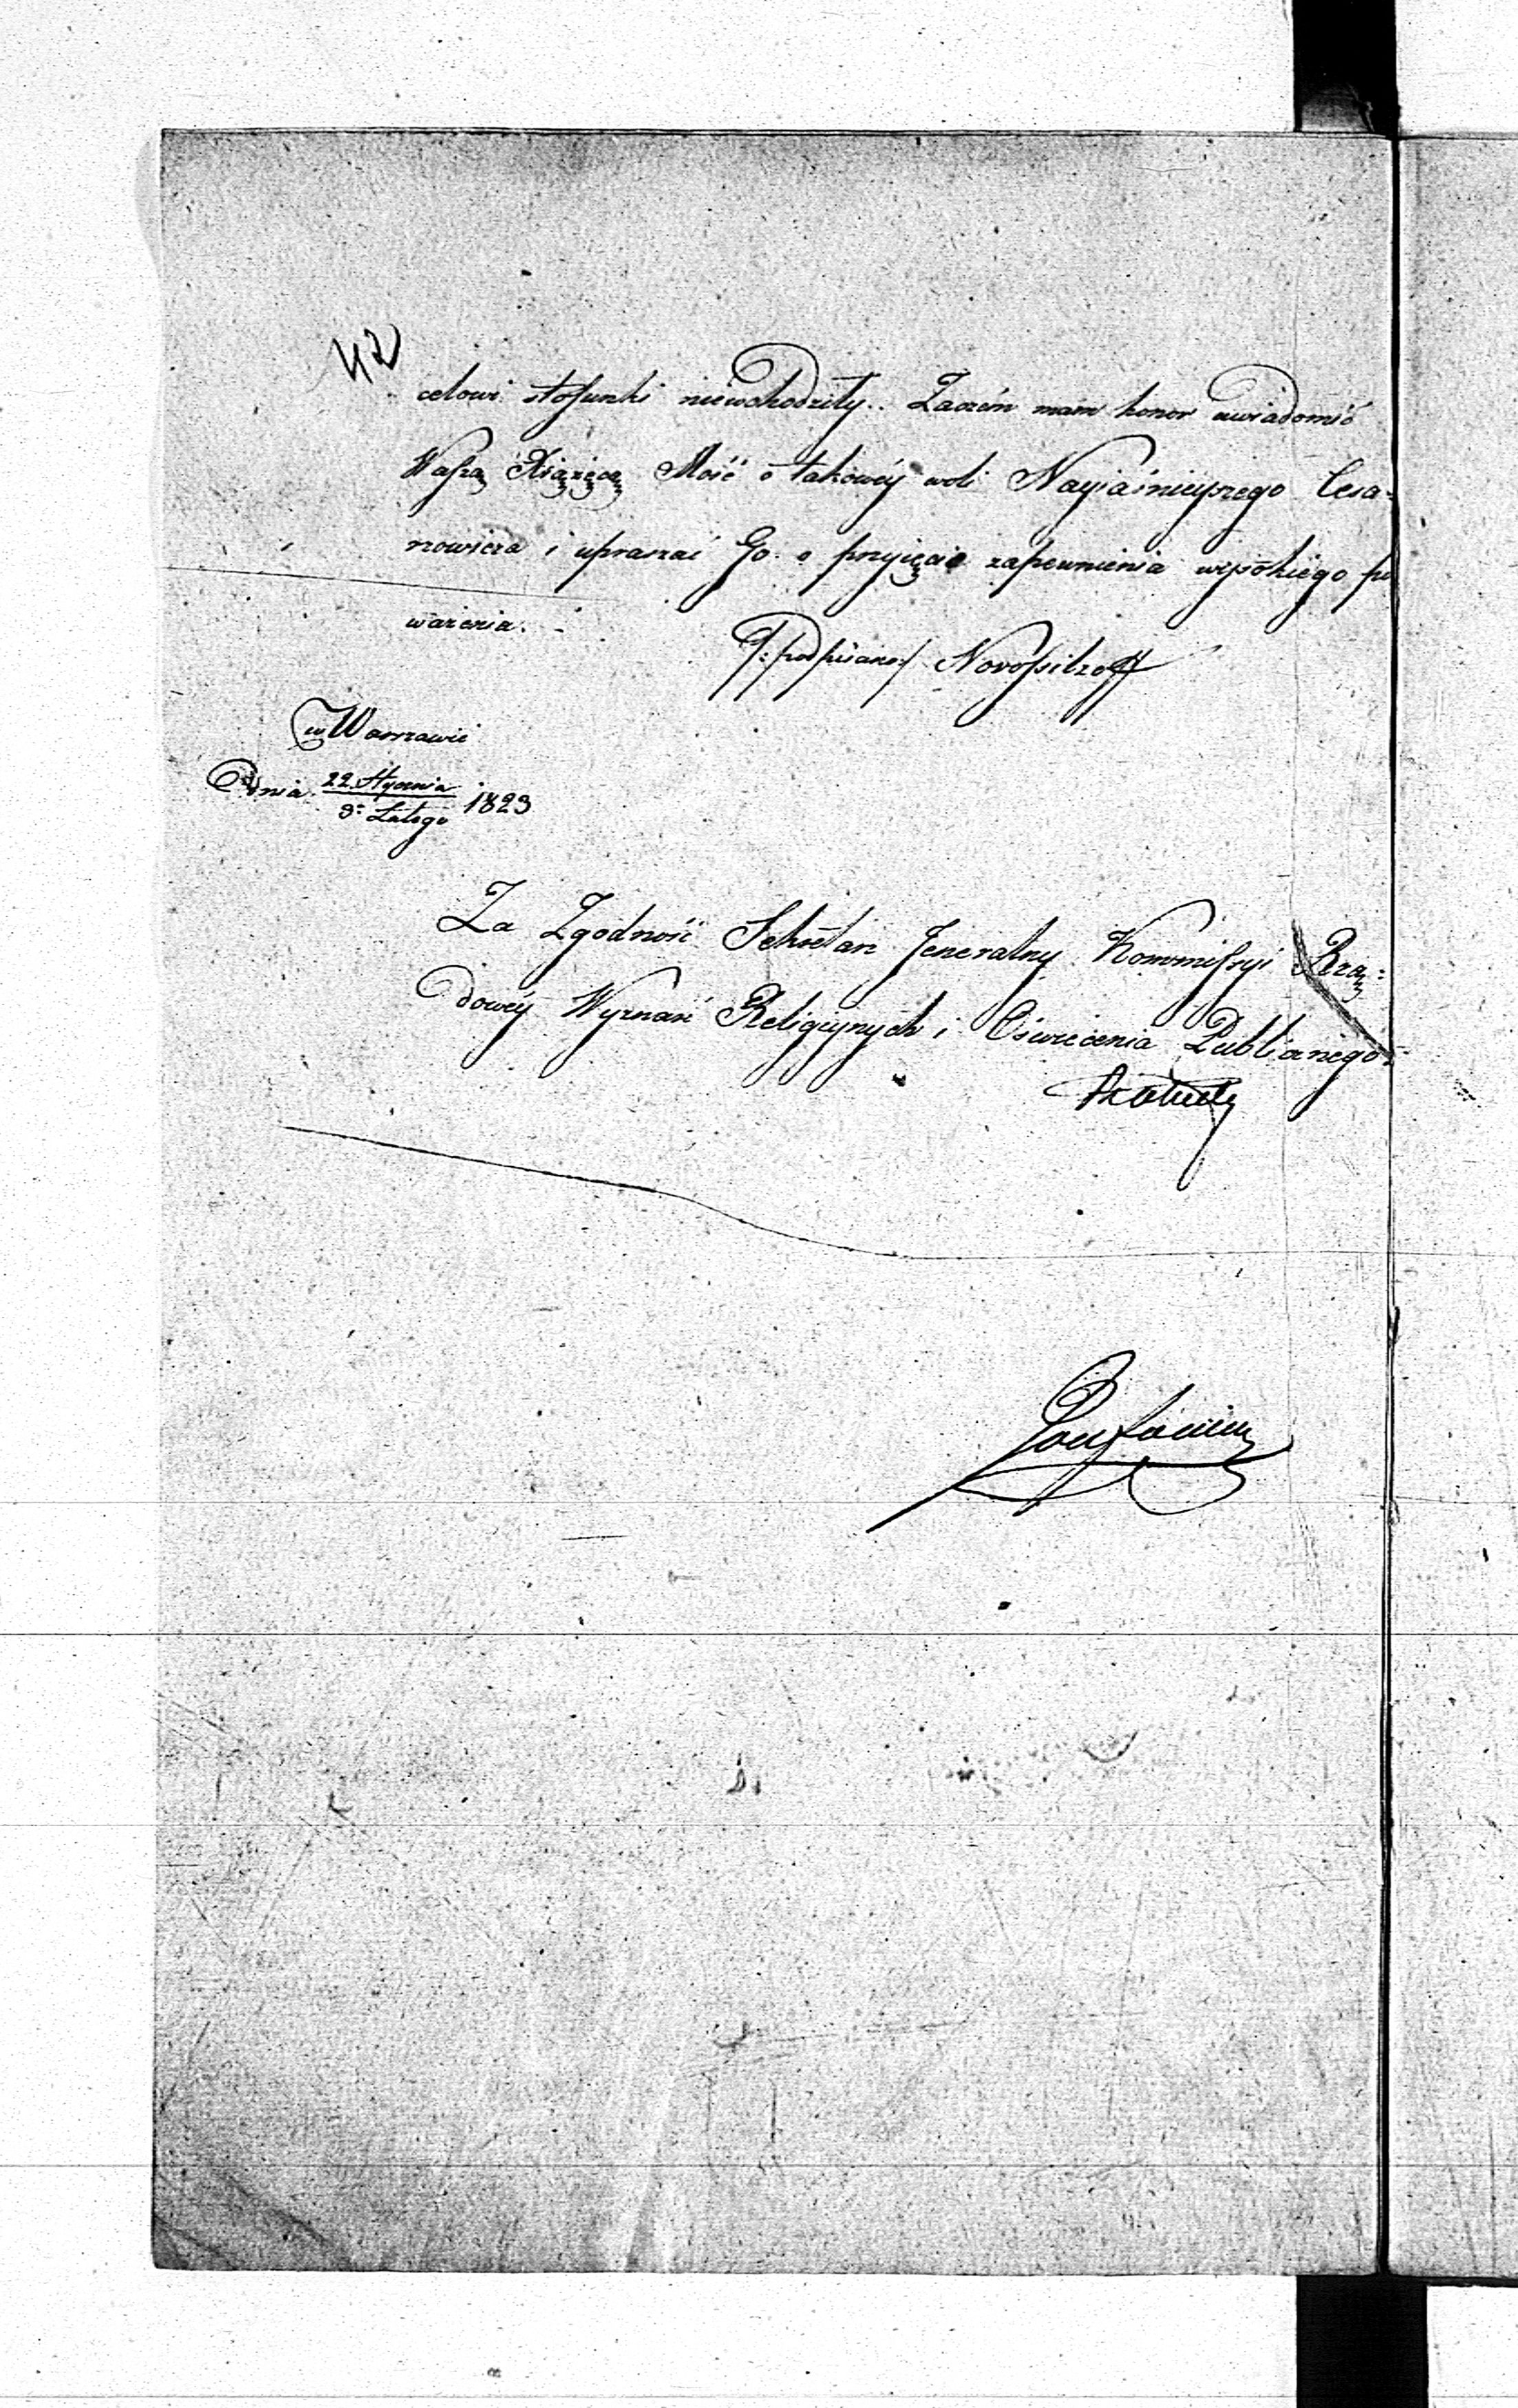 42
celowi stosunki niewchodziły. Zaczém mam honor uwiadomić
Waszą Xiążęcą Mość o takowéy woli Nayiaśnieyszego Cesa-
rzowicza i upraszać Go o przyięcie zapewnienia wysokiego po
ważenia. -
/: podpisano :/ Novossilzoff
w Warszawie
Dnia 22 Stycznia 1823
3 Lutego
Za Zgodność Sekretarz Jeneralny Kommissyi Rzą-
dowéy Wyznań Religiynych i Oświecenia Publicznego